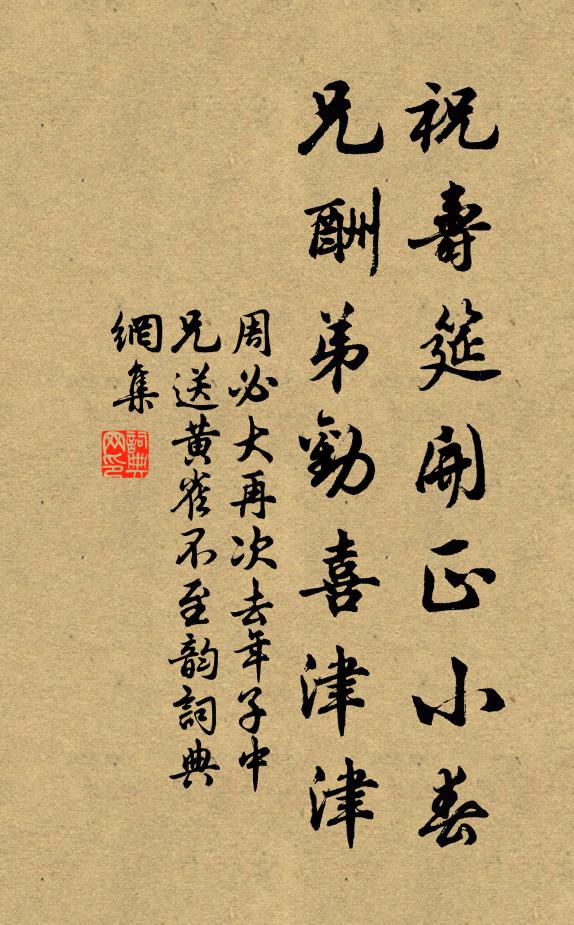 祝壽筵開正小春
兄酬弟勸喜津津
周必大再次去年子中
兄送黃雀不至韵詞典
網集
詞典網印